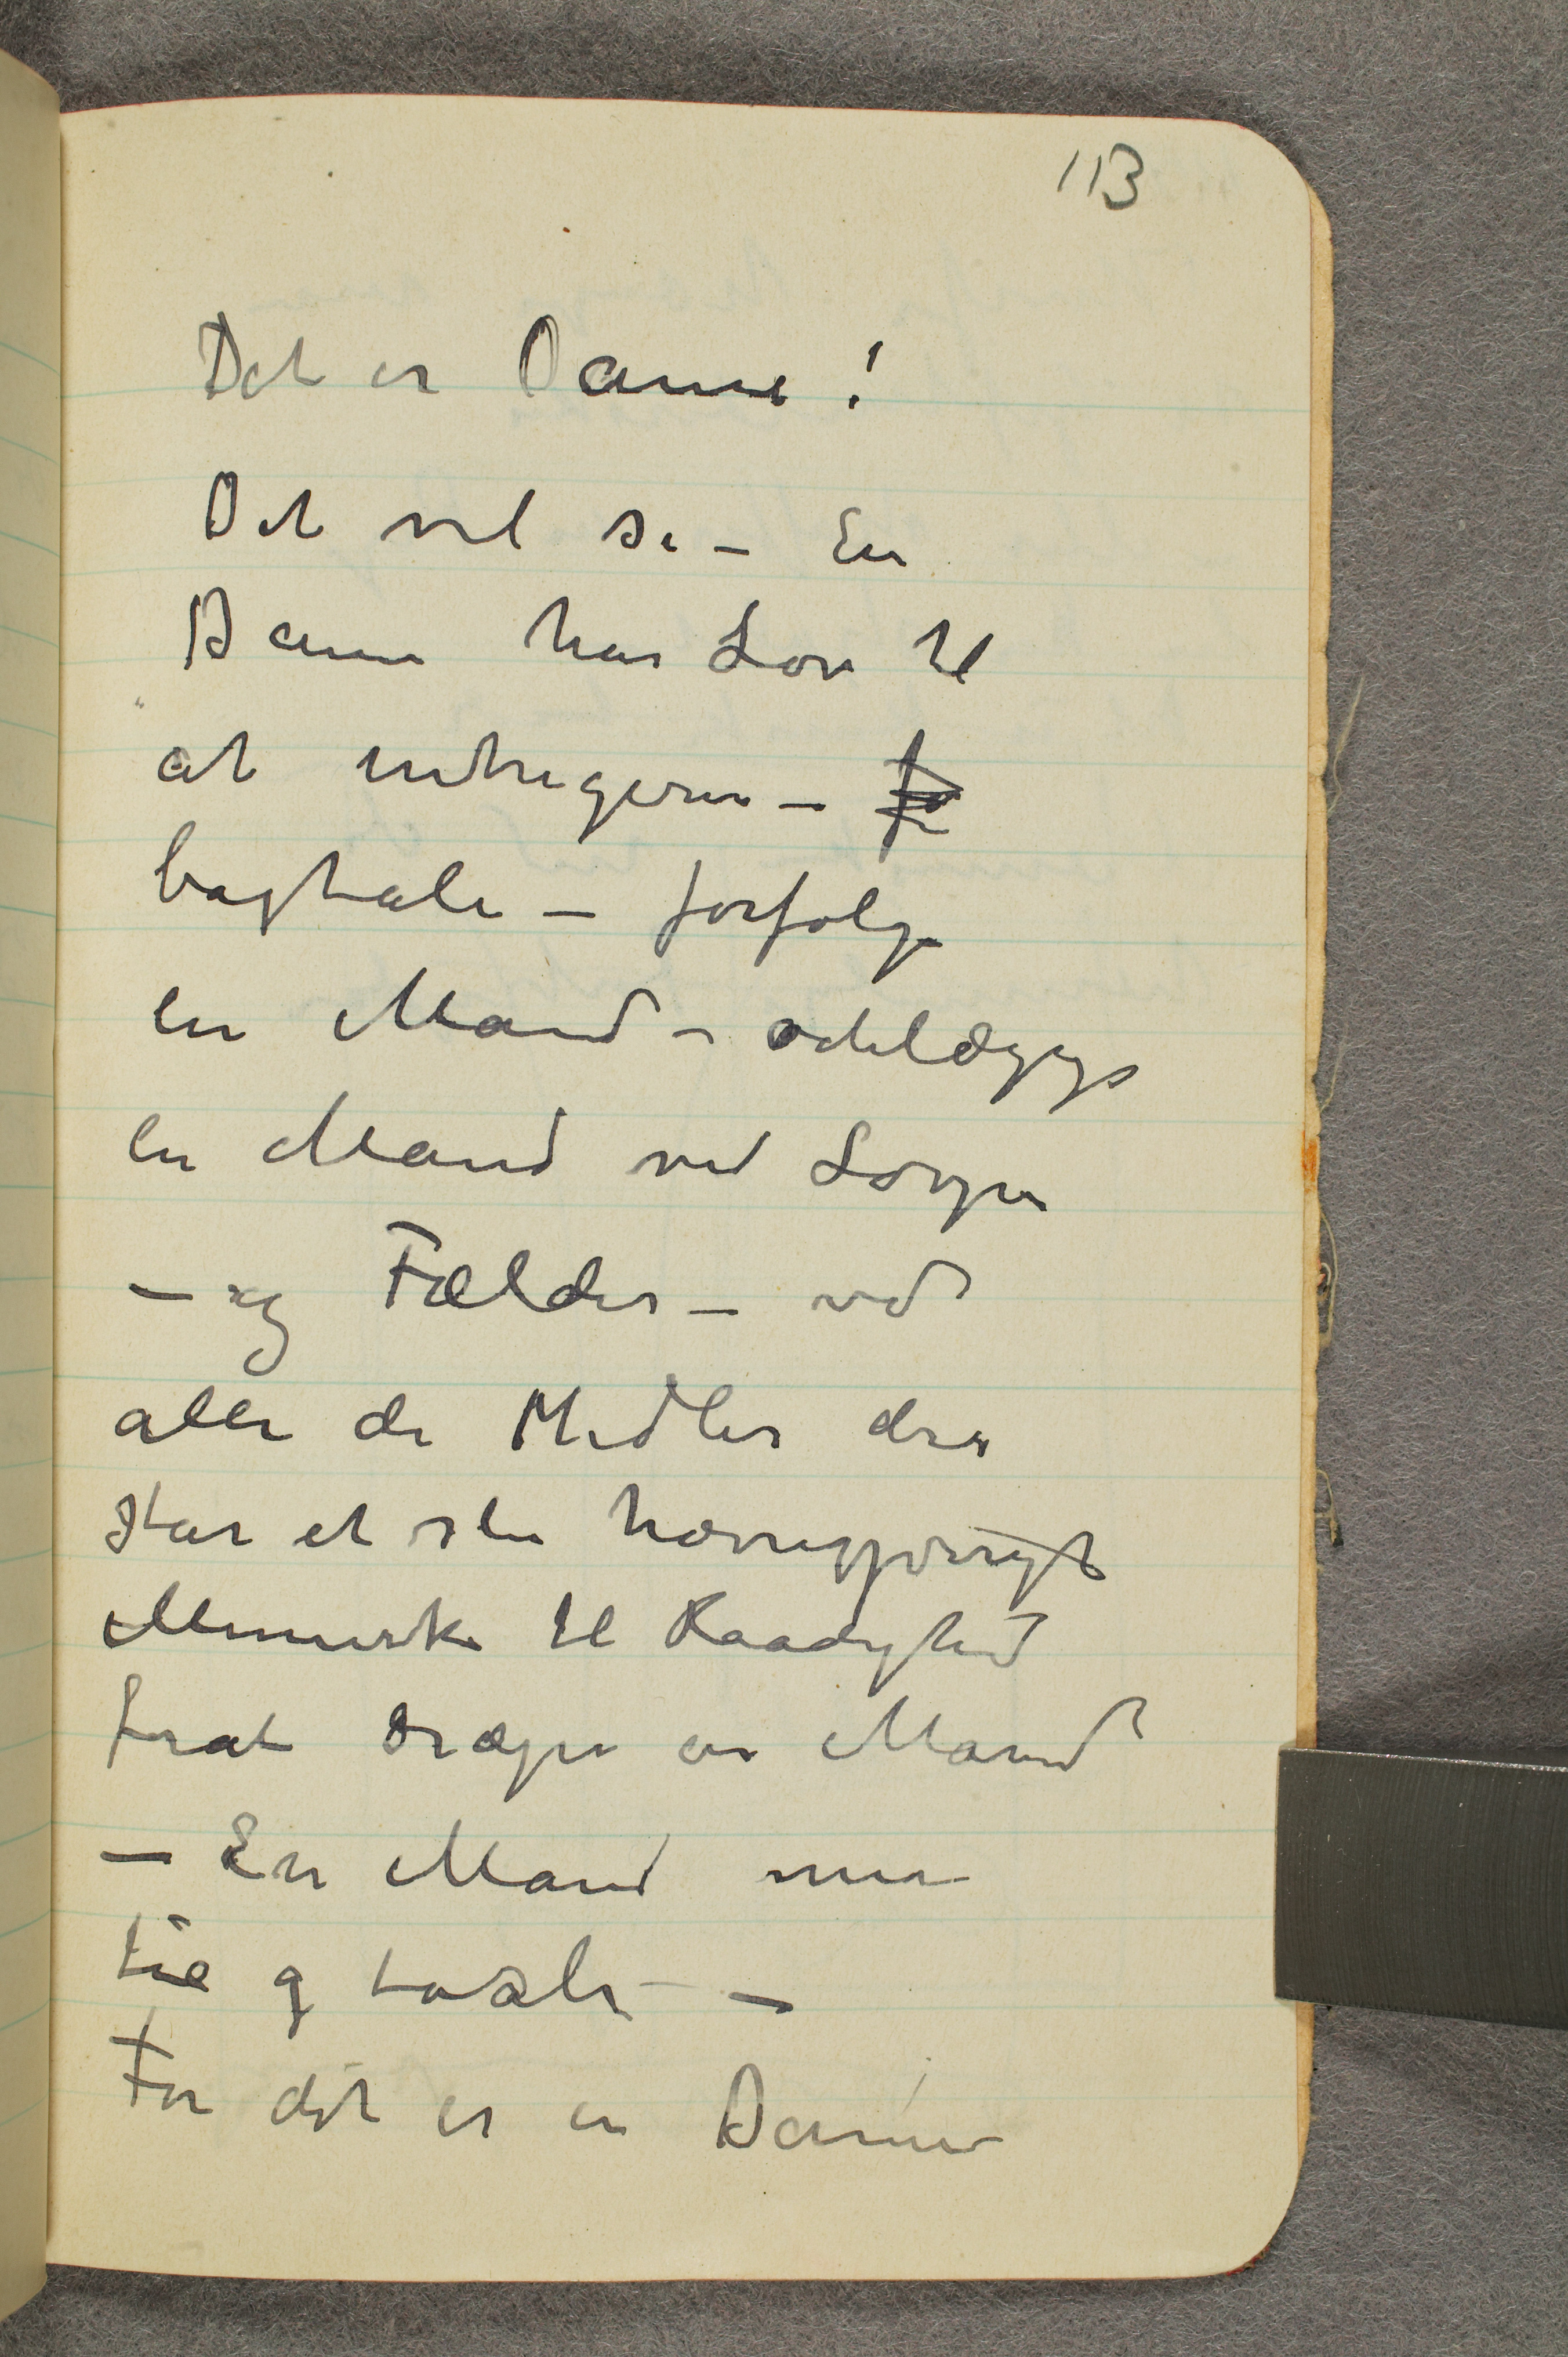 113
Det er Dame!
Det vil si – En
Dame har Lov til
at intrigere –
bagtale – forfølge
en Mand – ødelægge
en Mand ved Løgn
– og Fælder – ved
alle de Midler der
står et slu hævngjerrigt
Menneske til Raadighed
forat dræpe en Mand
– En Mand må
tie og taale –
For det er en Dame